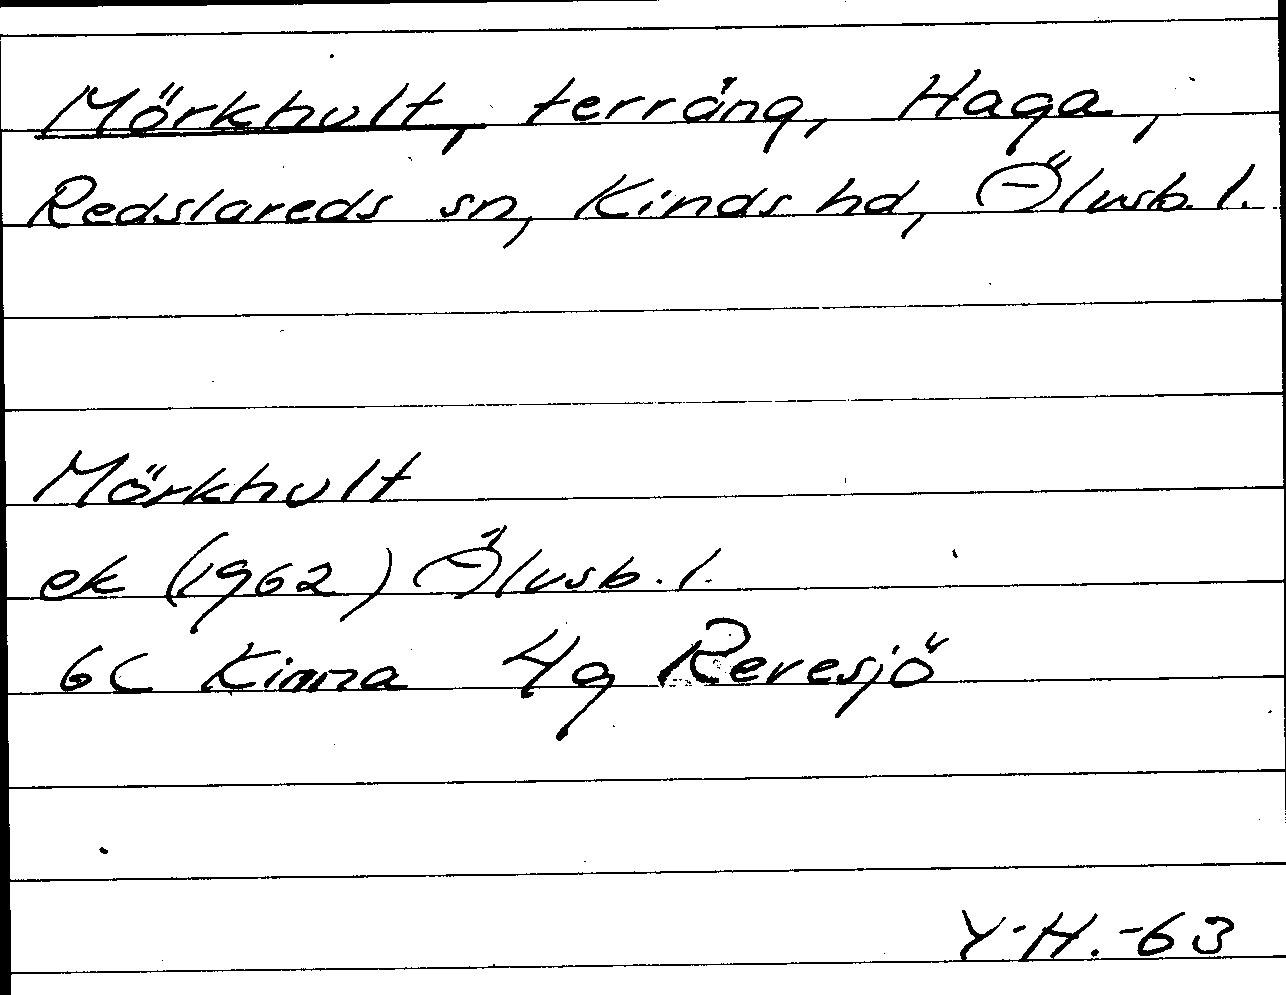 Mörkhult, terräng, Haga,
Redslareds sn, Kinds hd, Älvsb. l.
Mörkhult
ek (1962) Älvsb. l.
6C Kinna 4g Reresjö
Y-H.-63